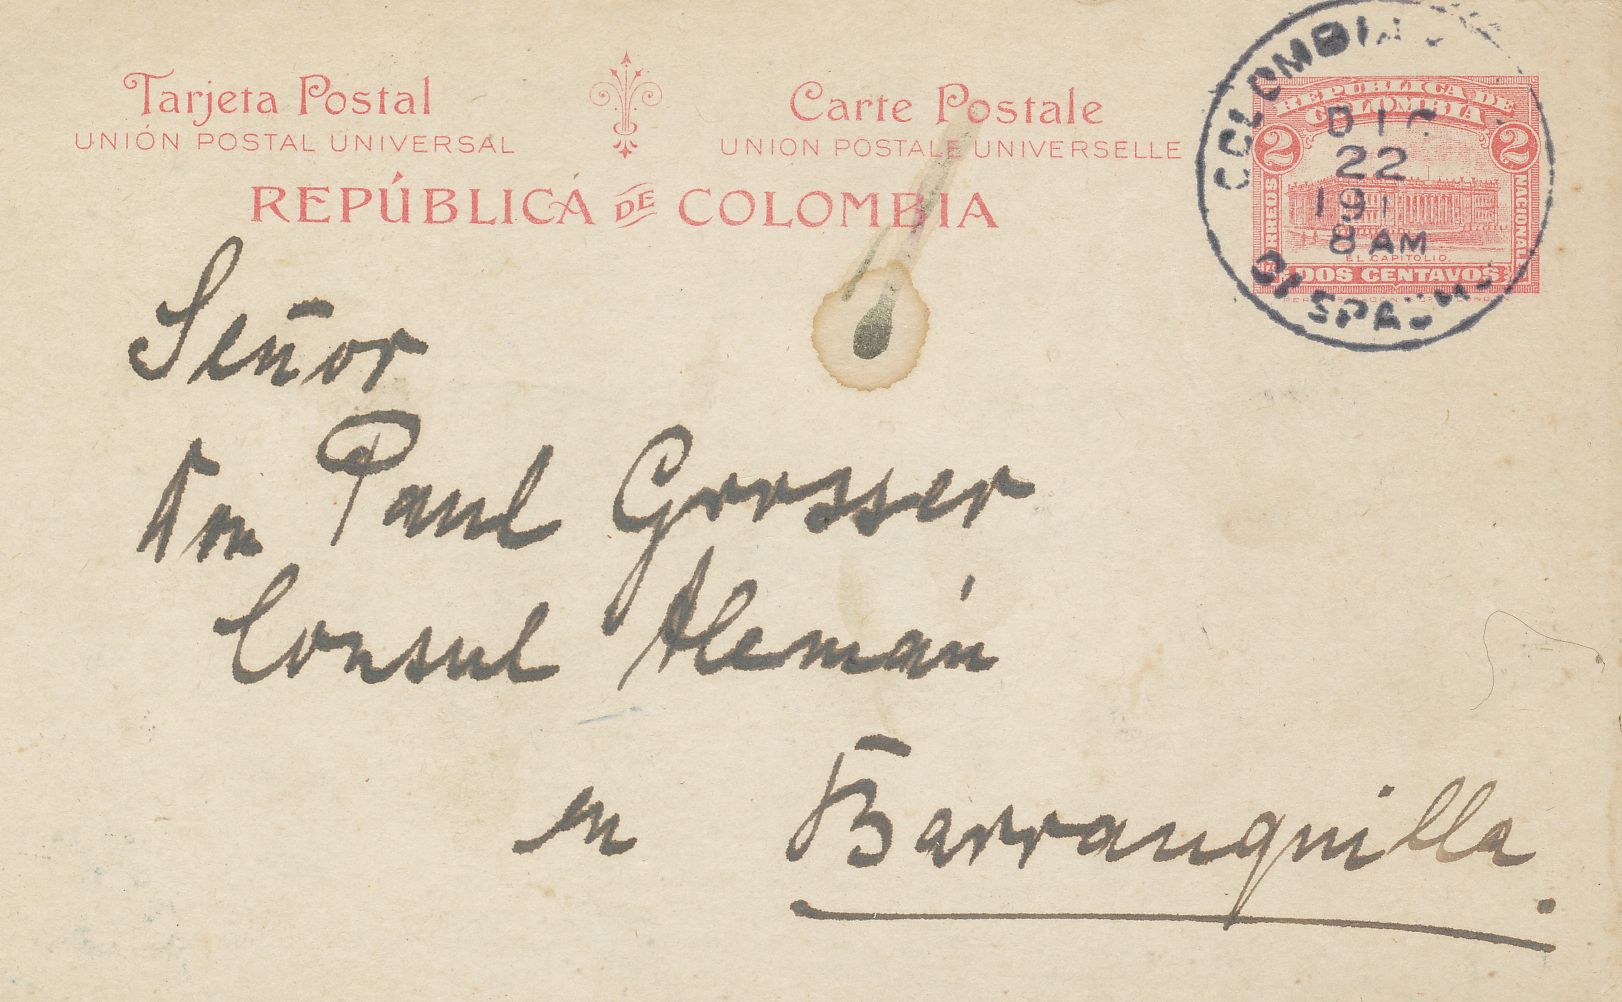 Tarjeta Postal
UNIÓN POSTAL UNIVERSAL
Carte Postale
UNION POSTALE UNIVERSELLE
REPÚBLICA DE COLOMBIA
REPUBLICA DE
COLOMBIA
2 2
CORREOS NACIONAL
EL CAPITOLIO.
DOS CENTAVOS
COLOMBIA
DIC
22
191
8 AM
Señor
don Paul Grosser
Consul Alemán
en Barranquilla.